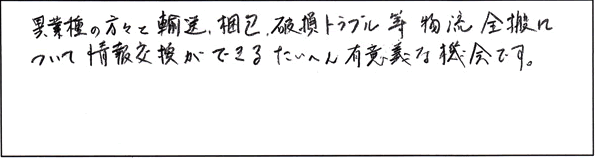 異業種の方々と輸送、梱包、破損トラブル等物流全搬に
ついて情報交換ができるたいへん有意義な機会です。